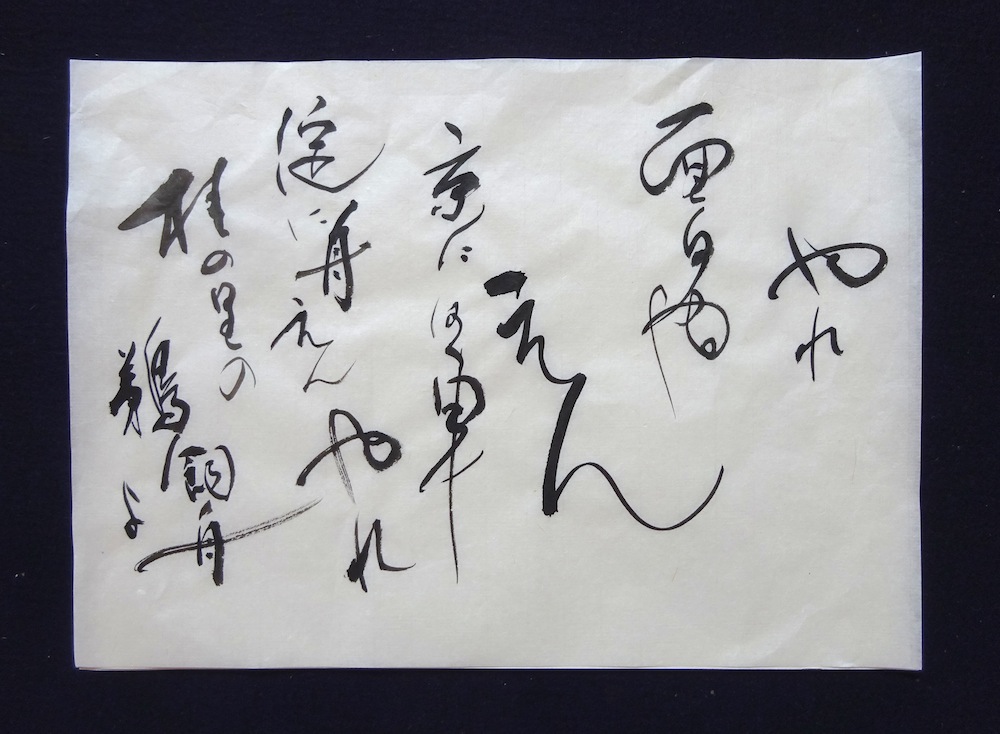 やれ
面白や
えん
京には車
やれ
淀に舟えん
桂の里の
鵜飼舟よ